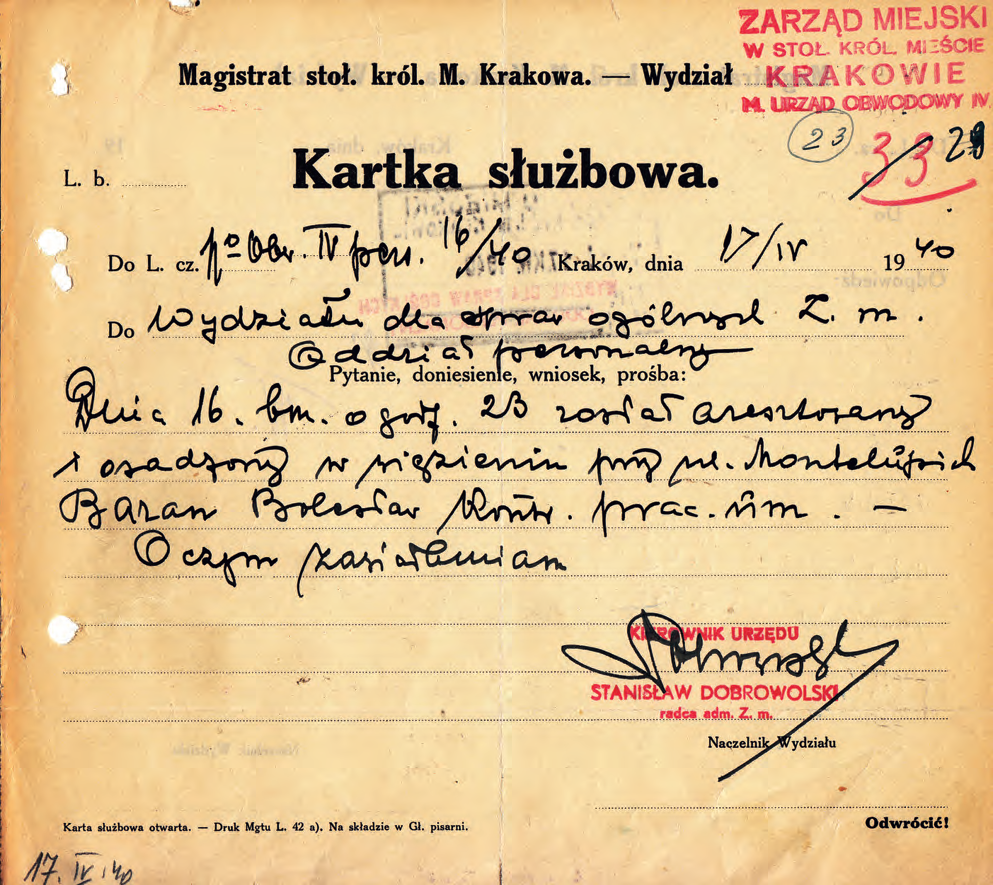 ZARZĄD MIEJSKI
W STOŁ. KRÓL. MIEŚCIE
KRAKOWIE
M. URZĄD OBWODOWY IV
Magistrat stoł. król. M. Krakowa. — Wydział
23
33
28
L. b.
Kartka służbowa.
Do L. cz. Obw. IV pers. 16/40 Kraków, dnia 17/IV 1940
Do Wydziału dla spraw ogólnych Z. m.
Oddział personalny
Pytanie, doniesienie, wniosek, prośba:
Dnia 16. bm. o godz. 23 został aresztowany
i osadzony w więzieniu przy ul. Montelupich
Baran Bolesław kontr. prac. um. —
O czym zawiadamiam
KIEROWNIK URZĘDU
STANISŁAW DOBROWOLSKI
radca adm. Z. m.
Naczelnik Wydziału
Karta służbowa otwarta. — Druk Mgtu L. 42 a). Na składzie w Gł. pisarni.
Odwrócić!
17. IV. 40